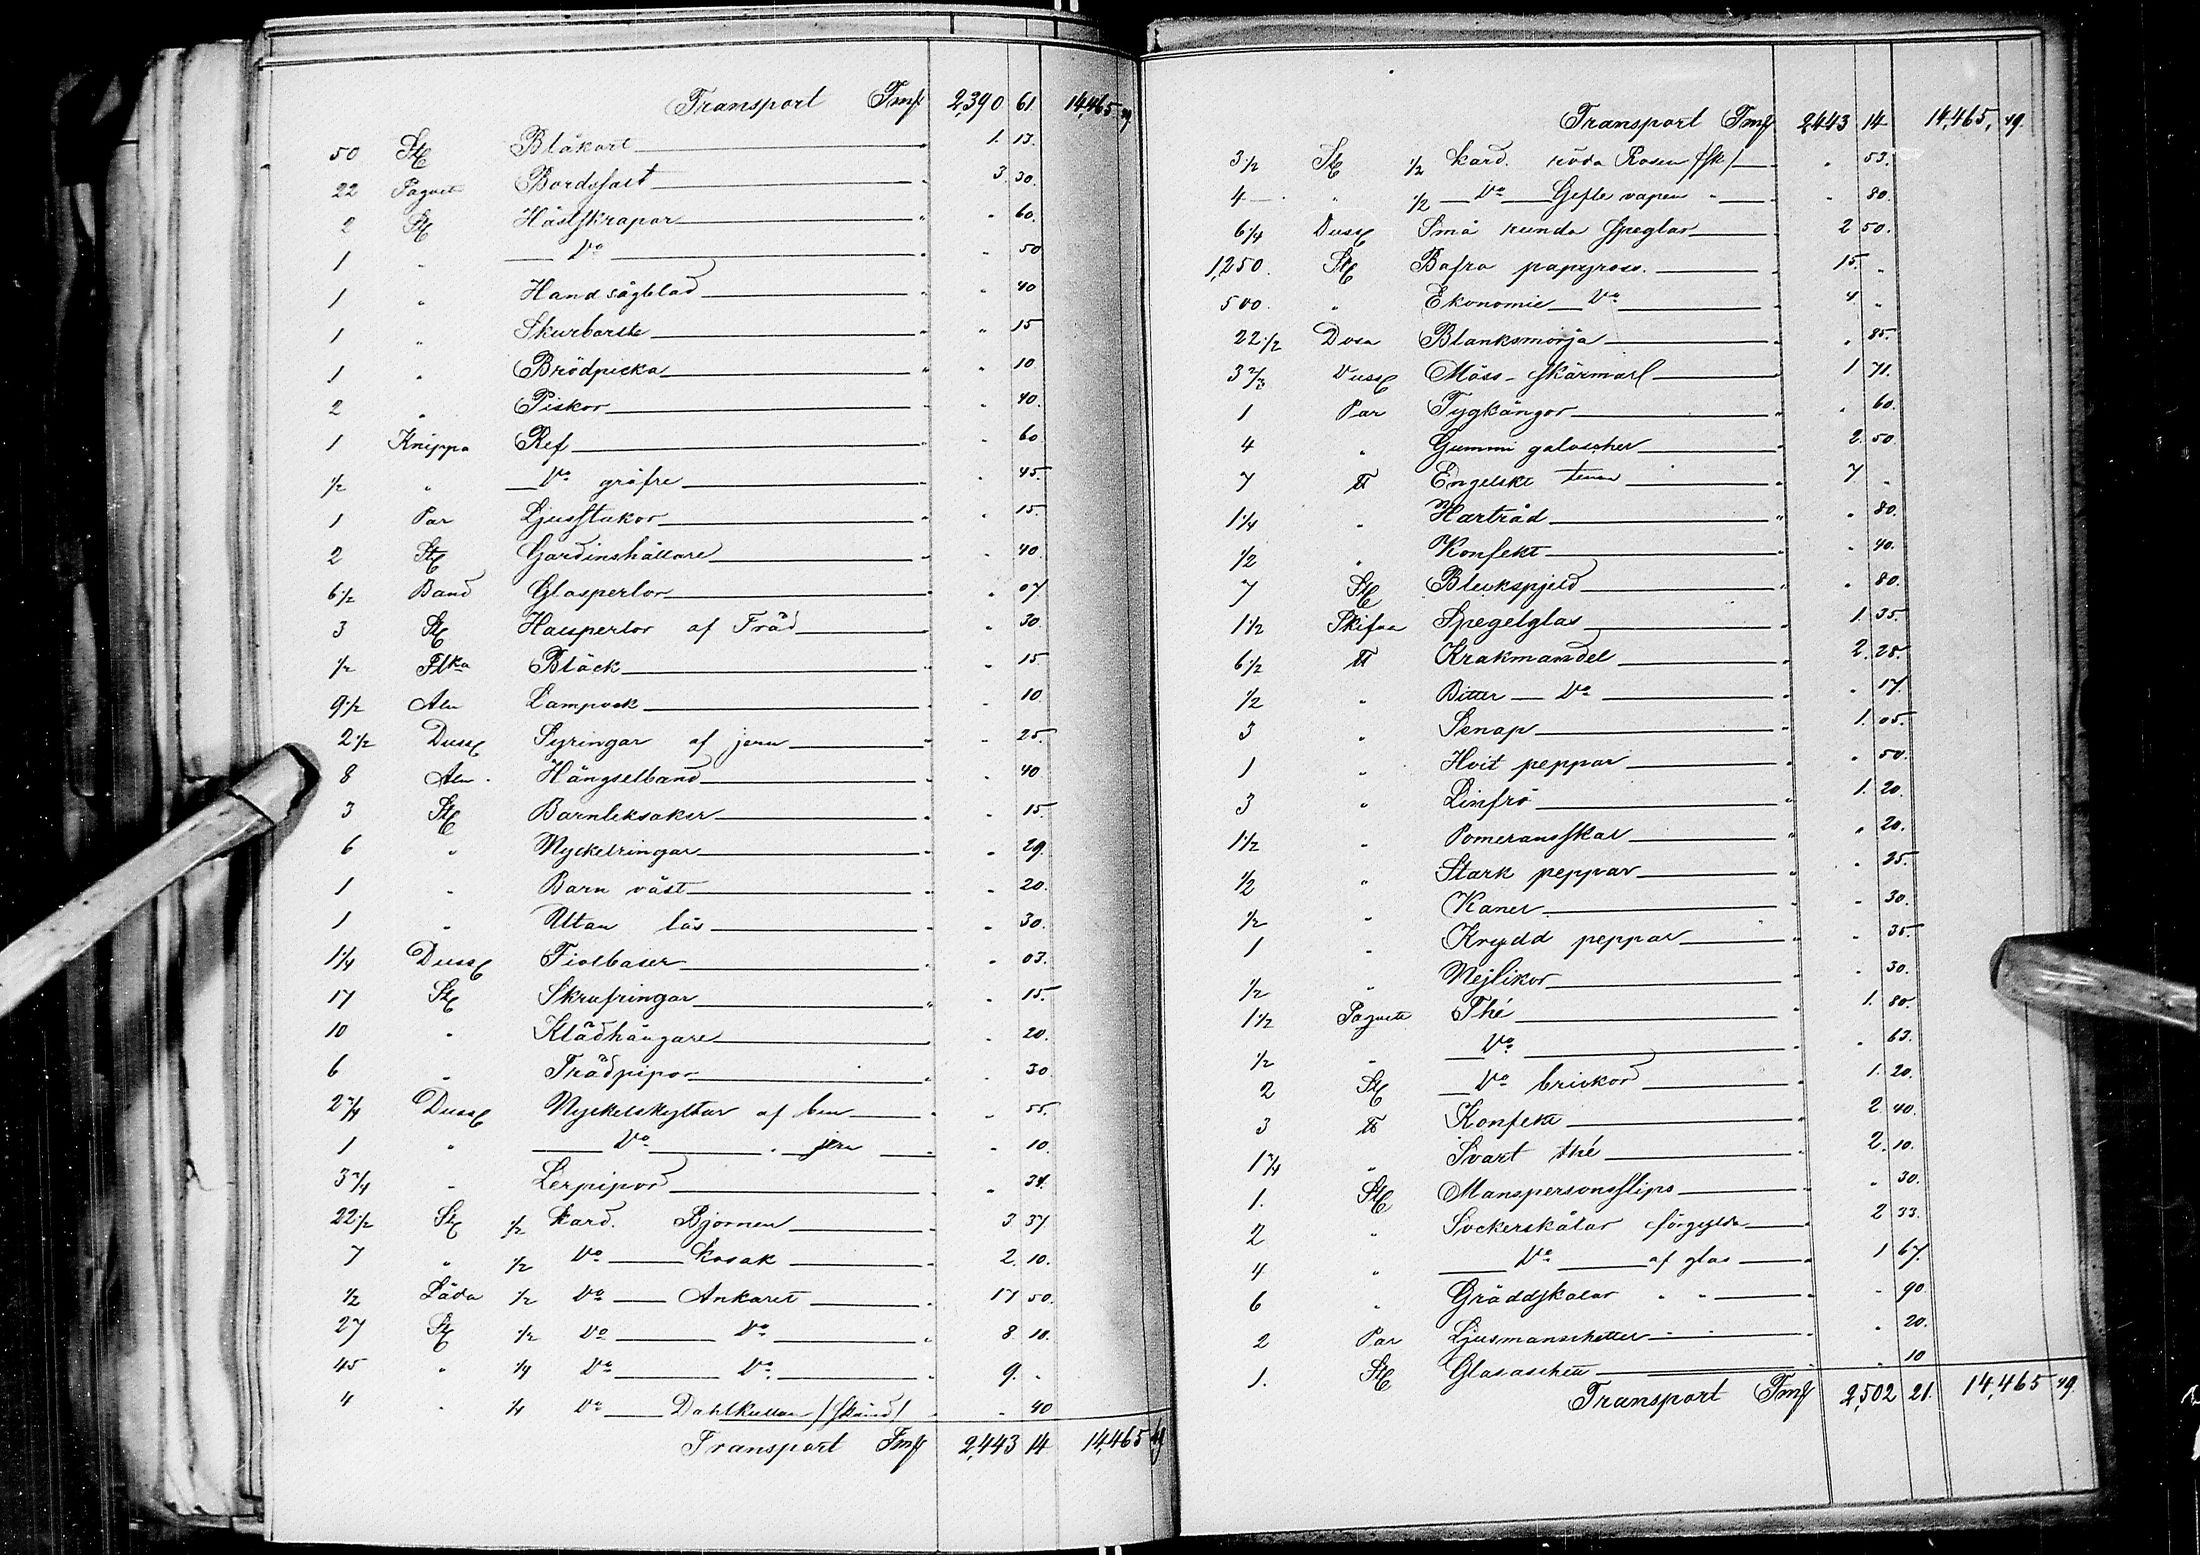 Transport Fmk 2,390 61 14,465 49
50 St Blåkort 1. 13.
22 Paquet Bordssalt 3. 30.
2 St Hästskrapor " 60.
1 " Do " 50
1 " Handsågblad " 40
1 " Skurborste " 15
1 " Brödpicka " 10
2 " Piskor " 40.
1 Knippa Ref " 60
1/2 " Do gröfre " 45.
1 Par Ljusstakor " 15.
2 St Gardinshållare " 40.
6 1/2 Band Glasperlor " 07
3 St af Tråd " 30.
1/2 Flka Bläck " 15
9 1/2 Aln Lampvek " 10.
2 1/2 Duss Syringar af jern " 25.
8 Aln Hängselband " 40
3 St Barnleksaker " 15.
6 " Nyckelringar " 29.
1 " Barn väst " 20.
1 " Utan lås " 30.
1 1/4 Duss " 03.
17 St Skrufringar " 15.
10 " Klädhängare " 20.
6 " Trädpipor " 30
2 3/4 Duss Nyckelskyltar af ben " 55.
1 " Do " jern " 10.
3 3/4 " Lerpipor " 34.
22 1/2 St 1/2 kard. Björnen 3 37
7 " 1/2 Do Kosak 2. 10.
1/2 Låda 1/2 Do Ankaret 17 50.
27 St 1/2 Do Do 8. 10.
45 " 1/4 Do Do 9. "
4 " 1/4 Do Dahlkullan " 40
Transport Fmk 2,443 14 14,465 49
Transport Fmk 2443 14 14,465, 49.
3 1/2 St 1/2 kard. röda Rosen /sk/ " 53.
4 " 1/2 Do Gefle vapen " " 80.
6 1/4 Duss Små runda speglar 2 50.
1,250. St Bafra papyross. 15. "
500. " Ekonomie Do 4. "
22 1/2 Dosa Blanksmörja " 85.
3 2/3 Duss Möss-skärmar 1 71.
1 Par Tygkängor " 60.
4 " Gummi galoscher 2. 50.
7 ℔ Engelskt tenn 7 "
1 1/4 " " 80.
1/2 " Konfekt " 40.
7 St Bleckspjeld " 80.
1 1/2 Skifva Spegelglas 1. 35.
6 1/2 ℔ Krakmandel 2. 28.
1/2 " Bitter Do " 17.
3 " Senap 1. 05.
1 " Hvit peppar " 50.
3 " Linfrö 1. 20.
1 1/2 " Pomeransskal " 20.
1/2 " Stark peppar " 25.
1/2 " Kanel " 30.
1 " Krydd peppar " 35.
1/2 " Nejlikor " 30.
1 1/2 Paquete Thé 1. 80.
1/2 " Do " 63.
2 St Do brickor 1. 20.
3 ℔ Konfekt 2. 40.
1 3/4 " Svart thé 2. 10.
1. St Manspersonsslips " 30.
2 " Sockerskålar förgyllda 2 33.
4 " Do af glas 1 67.
6 " Gräddskålar " " " 90
2 Par Ljusmanschetter " " " 20.
1. St Glasaschett " 10
Transport Fmk 2,502 21. 14,465 49.